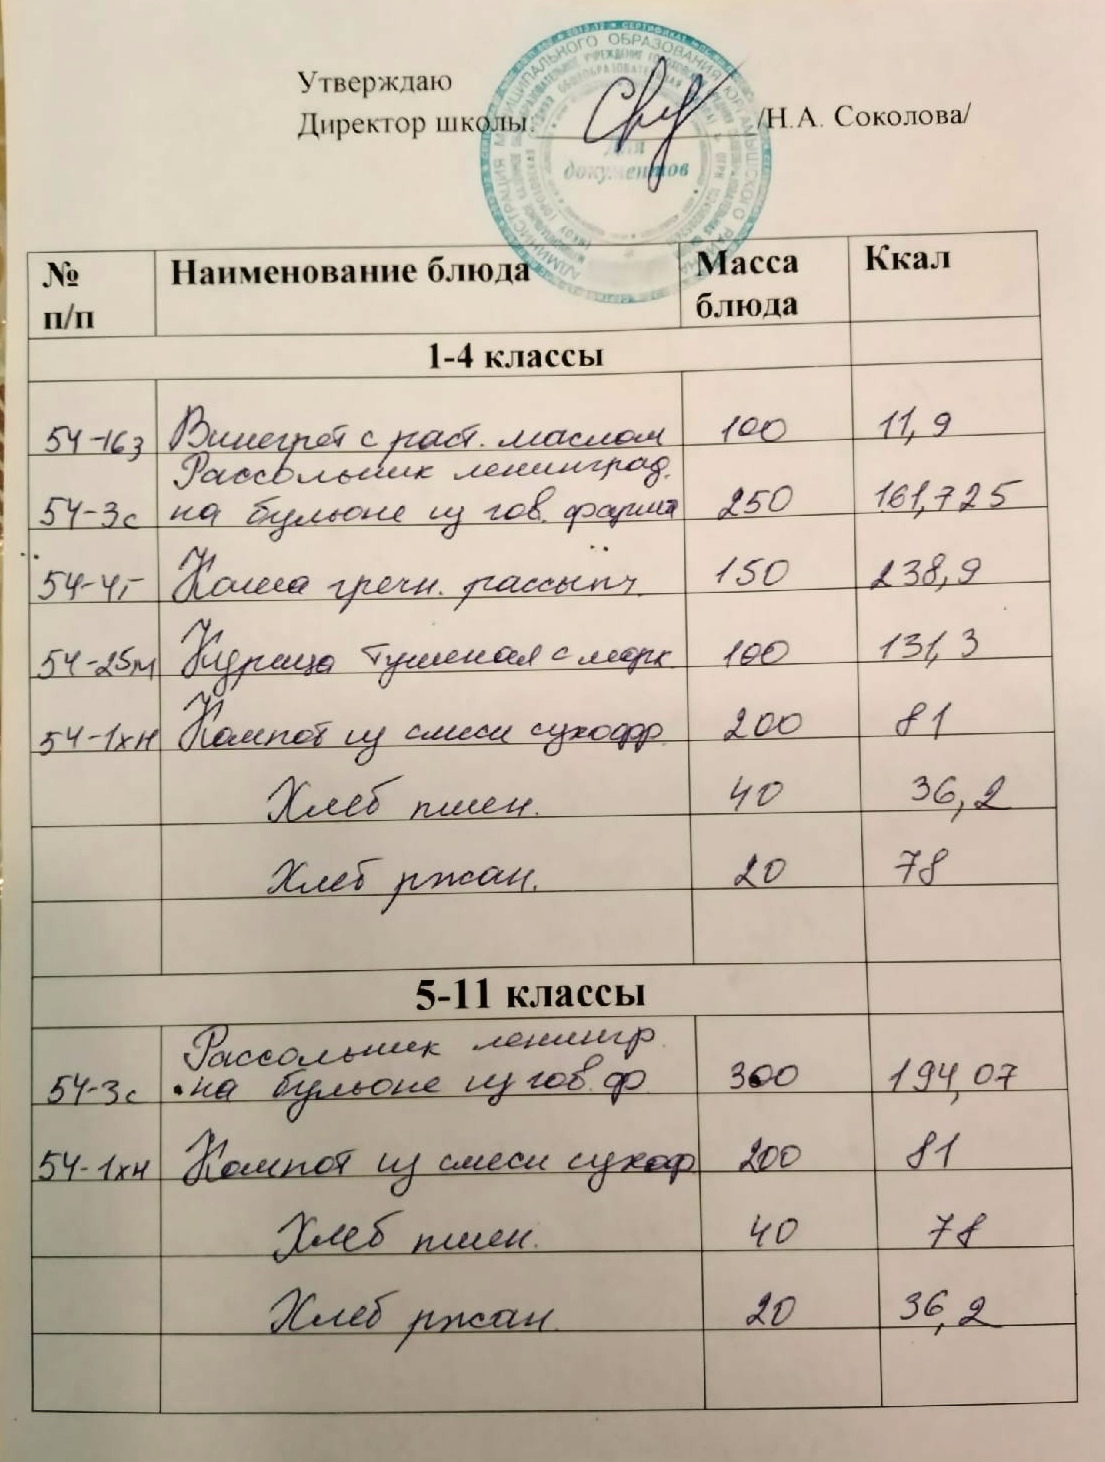 Утверждаю
Директор школы /Н.А. Соколова/
Для
документов
№ п/п Наименование блюда Масса блюда Ккал
1-4 классы
54-16з Винегрет с раст. маслом 100 11,9
Рассольник ленинград.
54-3с на бульоне из гов. фарша 250 161,725
54-4г Каша гречн. рассыпч. 150 238,9
54-25м Курица тушеная с морк. 100 131,3
54-1хн Компот из смеси сухофр. 200 81
Хлеб пшен. 40 36,2
Хлеб ржан. 20 78
5-11 классы
Рассольник ленингр.
54-3с на бульоне из гов. ф. 300 194,07
54-1хн Компот из смеси сухоф. 200 81
Хлеб пшен. 40 78
Хлеб ржан. 20 36,2